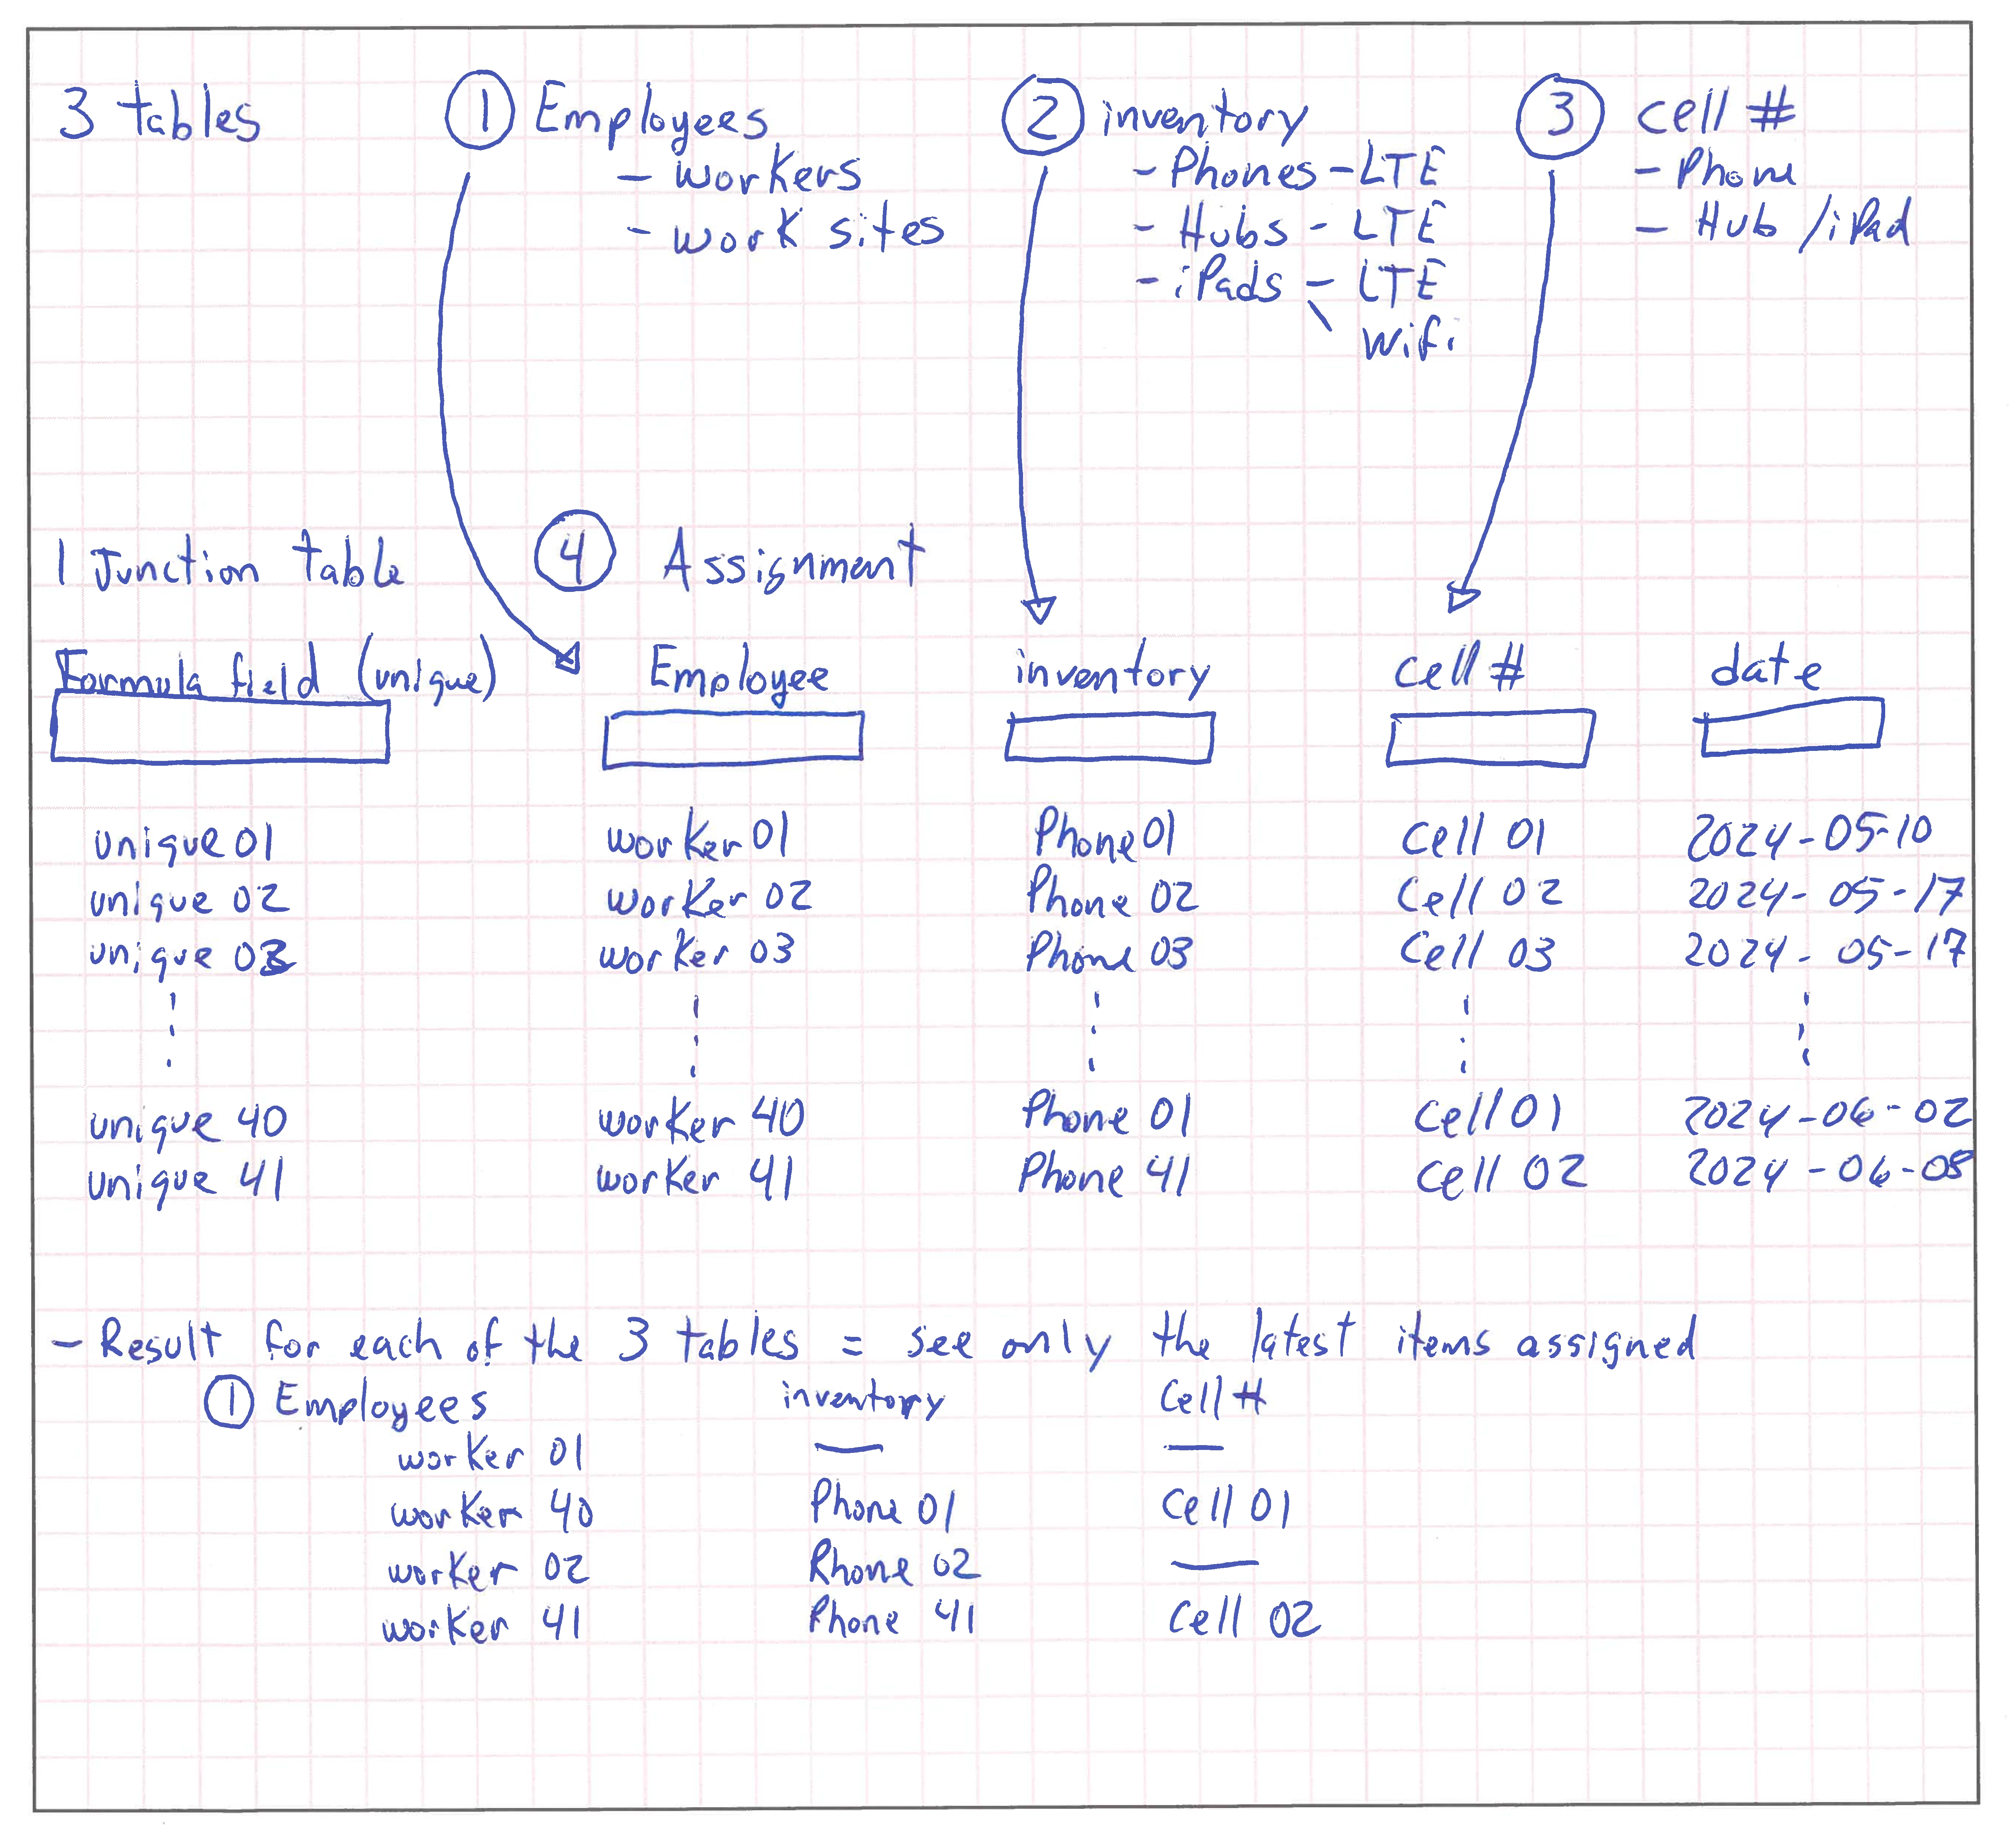 3 tables ① Employees ② inventory ③ cell #
- workers - Phones - LTE - Phone
- work sites - Hubs - LTE - Hub / iPad
- iPads - LTE
\ Wifi
1 Junction table ④ Assignment
Formula field (unique) Employee inventory cell # date
unique 01 worker 01 Phone 01 Cell 01 2024-05-10
unique 02 worker 02 Phone 02 Cell 02 2024-05-17
unique 03 worker 03 Phone 03 Cell 03 2024-05-17
unique 40 worker 40 Phone 01 Cell 01 2024-06-02
unique 41 worker 41 Phone 41 Cell 02 2024-06-08
- Result for each of the 3 tables = see only the latest items assigned
① Employees inventory Cell #
worker 01 — —
worker 40 Phone 01 Cell 01
worker 02 Phone 02 —
worker 41 Phone 41 Cell 02